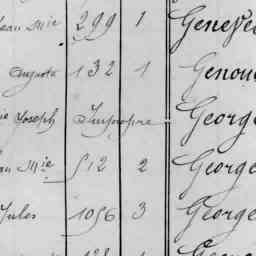 Jean Mie 299 1 Genev
Auguste 132 1 Genou
Joseph Impropre George
Jean Mie 512 2 George
Jules 1056 3 George